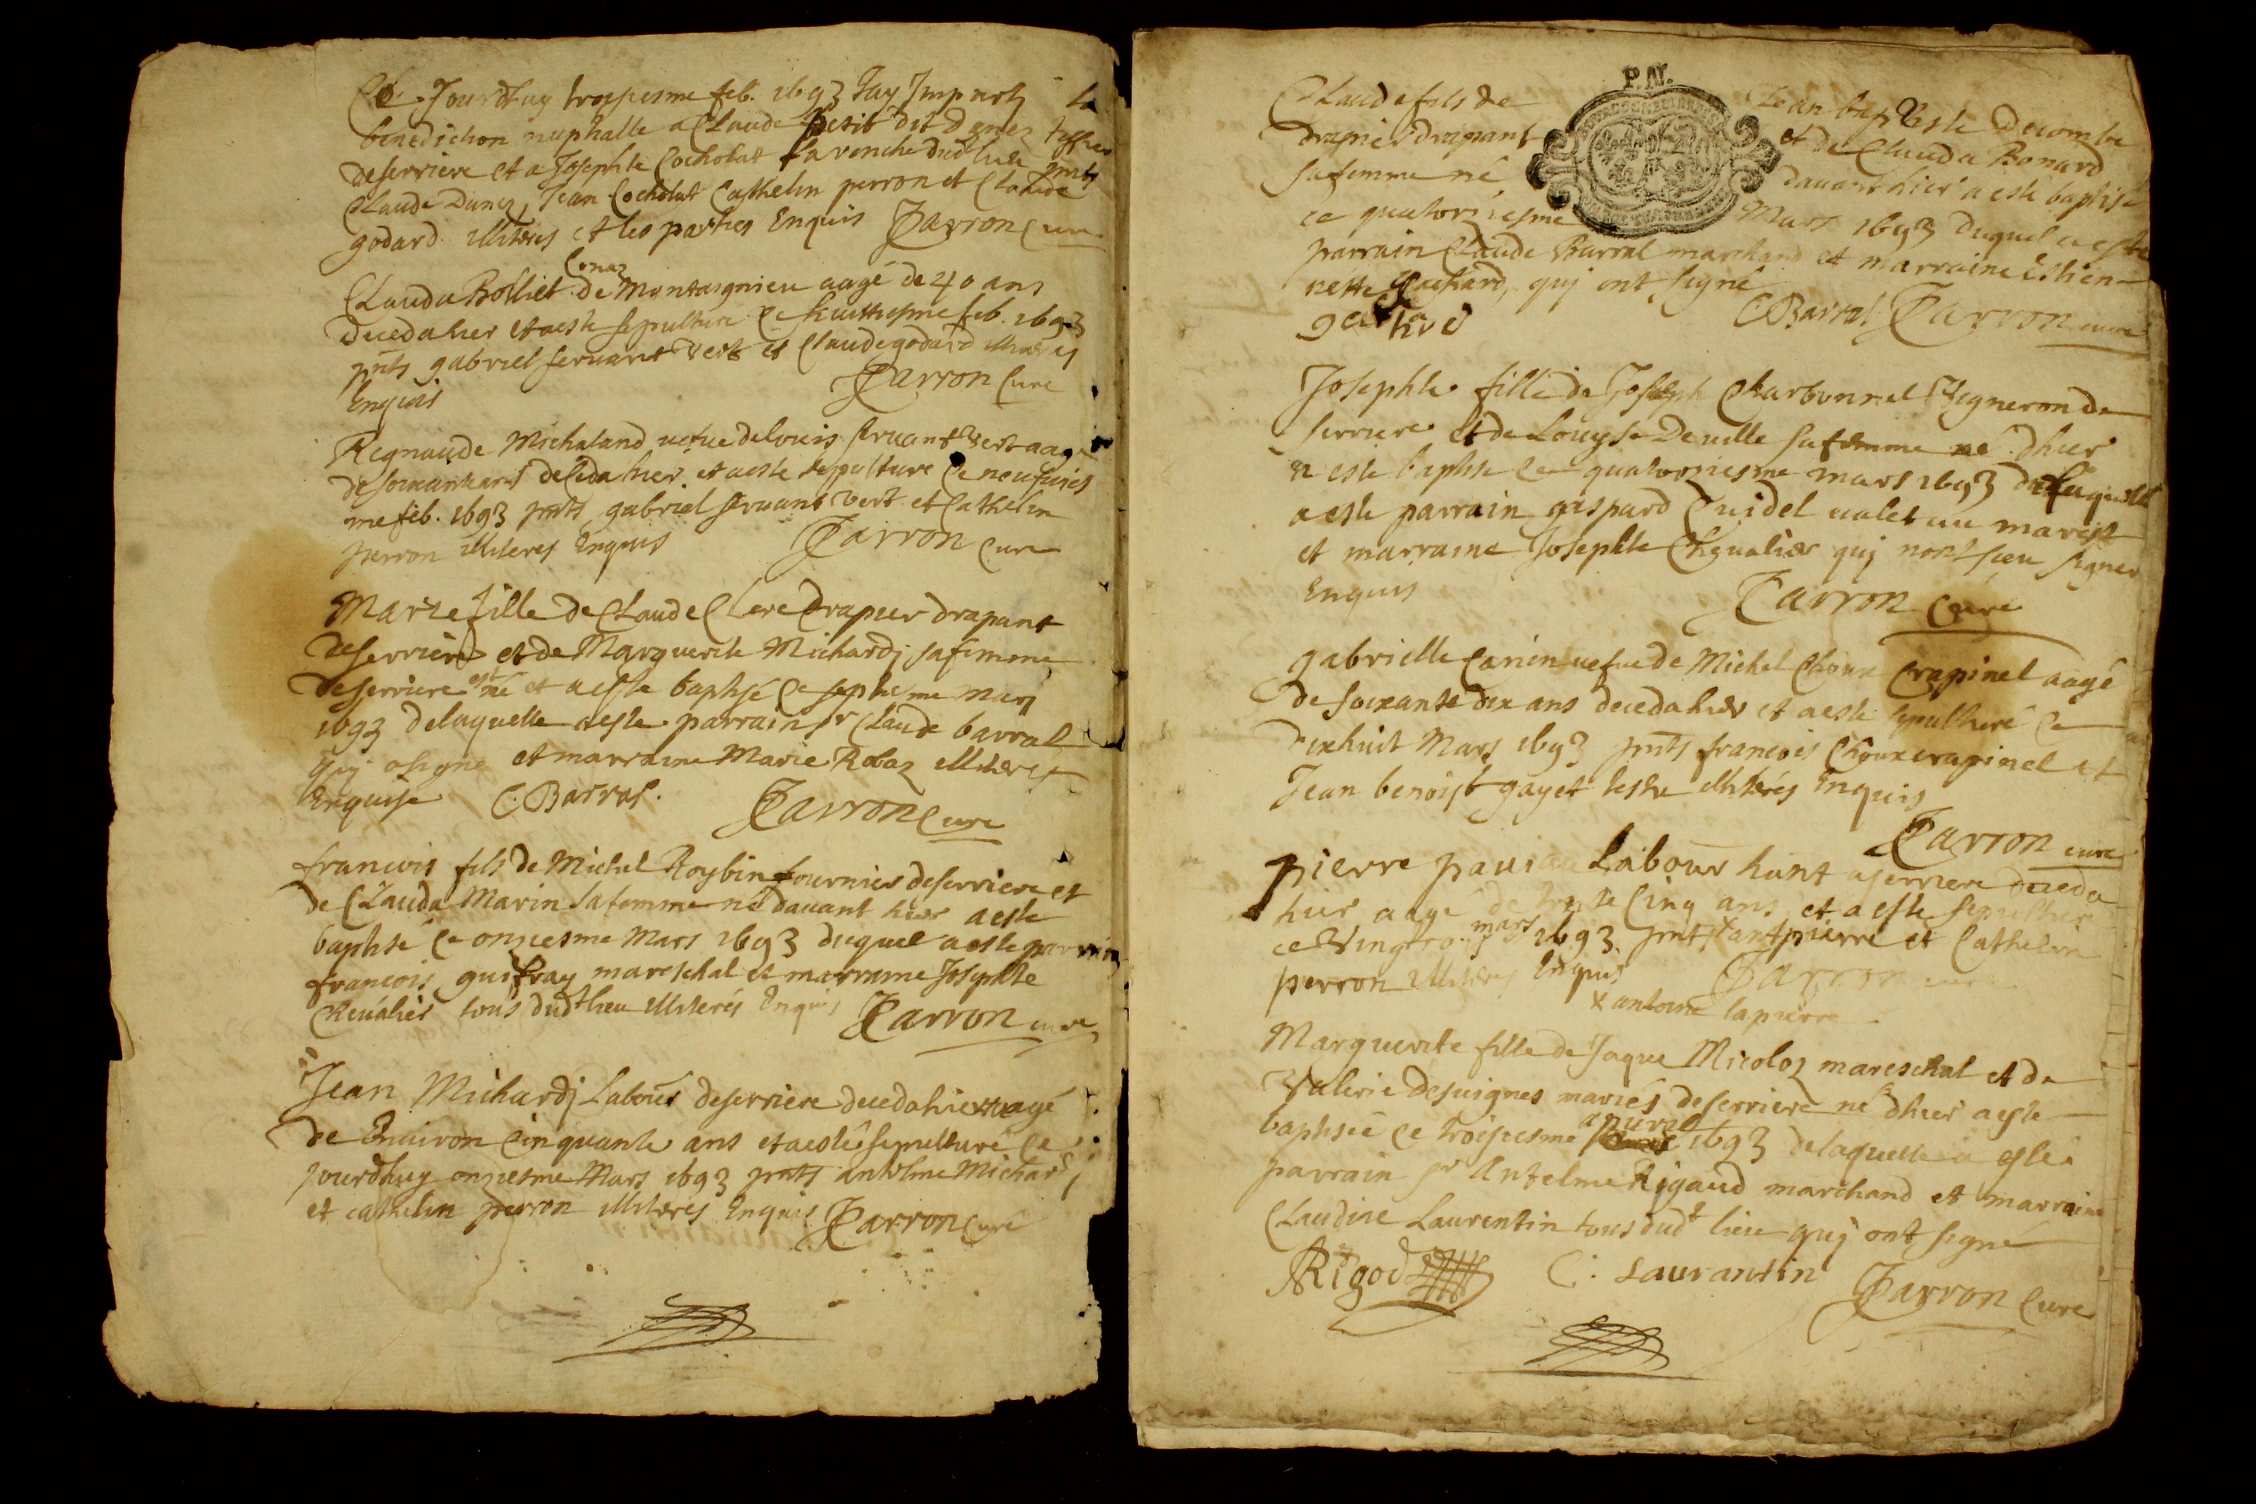 Ce Jourdhuy troisiesme feb. 1693 Jay Imparty la
benediction nuptialle a Claude petit dit Dunez
de serriere et a Josephte Cocholat
Claude Dunez, Jean Cocholat Cathelin perron et Claude
godard illiteres et les parties Enquis Parron Cure
Conaz
Clauda Bolliet de Montagnieu aagé de 40 ans
deceda hier et a este sepulturé Ce huittiesme feb. 1693
pnts gabriel servant vert et Claude godard illiteres
Enquis Parron Cure
Regnaude Michaland vefue de louis servant vert aagé
de soixante ans deceda hier et a este sepulture Ce neufuies
me feb. 1693 pnts gabriel servant vert et Cathelin
perron illiteres Enquis Parron Cure
Marie fille de Claude Clere Drapier drapant
de serriere et de Marguerite Michardj sa femme
de serriere est né et a este baptisé Ce septiesme Mars
1693 de laquelle a este parrain sr Claude barral
quj a signe et marraine Marie Robaz illiteres
Enquise C. Barral. Parron Cure
francois fils de Michel Roybin fournier de serriere et
de Clauda Marin sa femme né davant hier a este
baptisé Ce onziesme Mars 1693 duquel a este parrain
francois guiffray mareschal et marraine Josephte
Chevalier tous dudt lieu illiterés Enquis Parron cure
Jean Michardj Labour de serriere deceda hier aagé
de Enuiron Cinquante ans et a esté sepulturé Ce
jourdhuy onziesme Mars 1693 pnts antelme Michardj
et cathelin perron illiterés Enquis Parron Curé
Claude fils de Jean baptiste Decombe
drapier drapant et de Clauda Bonard
sa femme né davant hier a este baptisé
ce quatorziesme Mars 1693 duquel a este
parrain Claude Barral marchand et marraine Estien-
nette gachard, quj ont signé
C. Barral Parron cure
Josephte fille de Joseph Charbonnel Vigneron de
serriere et de Louyse Deuille sa femme né dhier
a este baptisé Ce quatorziesme mars 1693 de laquelle
a este parrain gaspard Cuidel ualet au marest
et marraine Josephte Cheualier quj nont sceu signer
Enquis Parron Curé
gabrielle Canin uefue de Michel Choux Crapinel aagé
de soixante dix ans deceda hier et a este sepulturé Ce
dixhuit Mars 1693 pnts francois Choux crapinel et
Jean benoist gayet illiterés Enquis
Parron cure
pierre Labour hant a serriere deceda
hier aagé de trente Cinq ans et a este sepulturé
ce mars 1693 pnts x ant pierre et Cathelin
perron illiteres Enquis Parron cure
x antoine lapierre
Marguerite fille de Jaque Micoloz mareschal et de
Valerie Desuignes mariés de serriere né dhier a este
baptisée Ce troisiesme apuril 1693 de laquelle a esté
parrain sr Antelme Rigaud marchand et marraine
Claudine Laurentin tous dudt lieu quj ont signé
ARigod C. Laurantin Parron Cure
P.N.